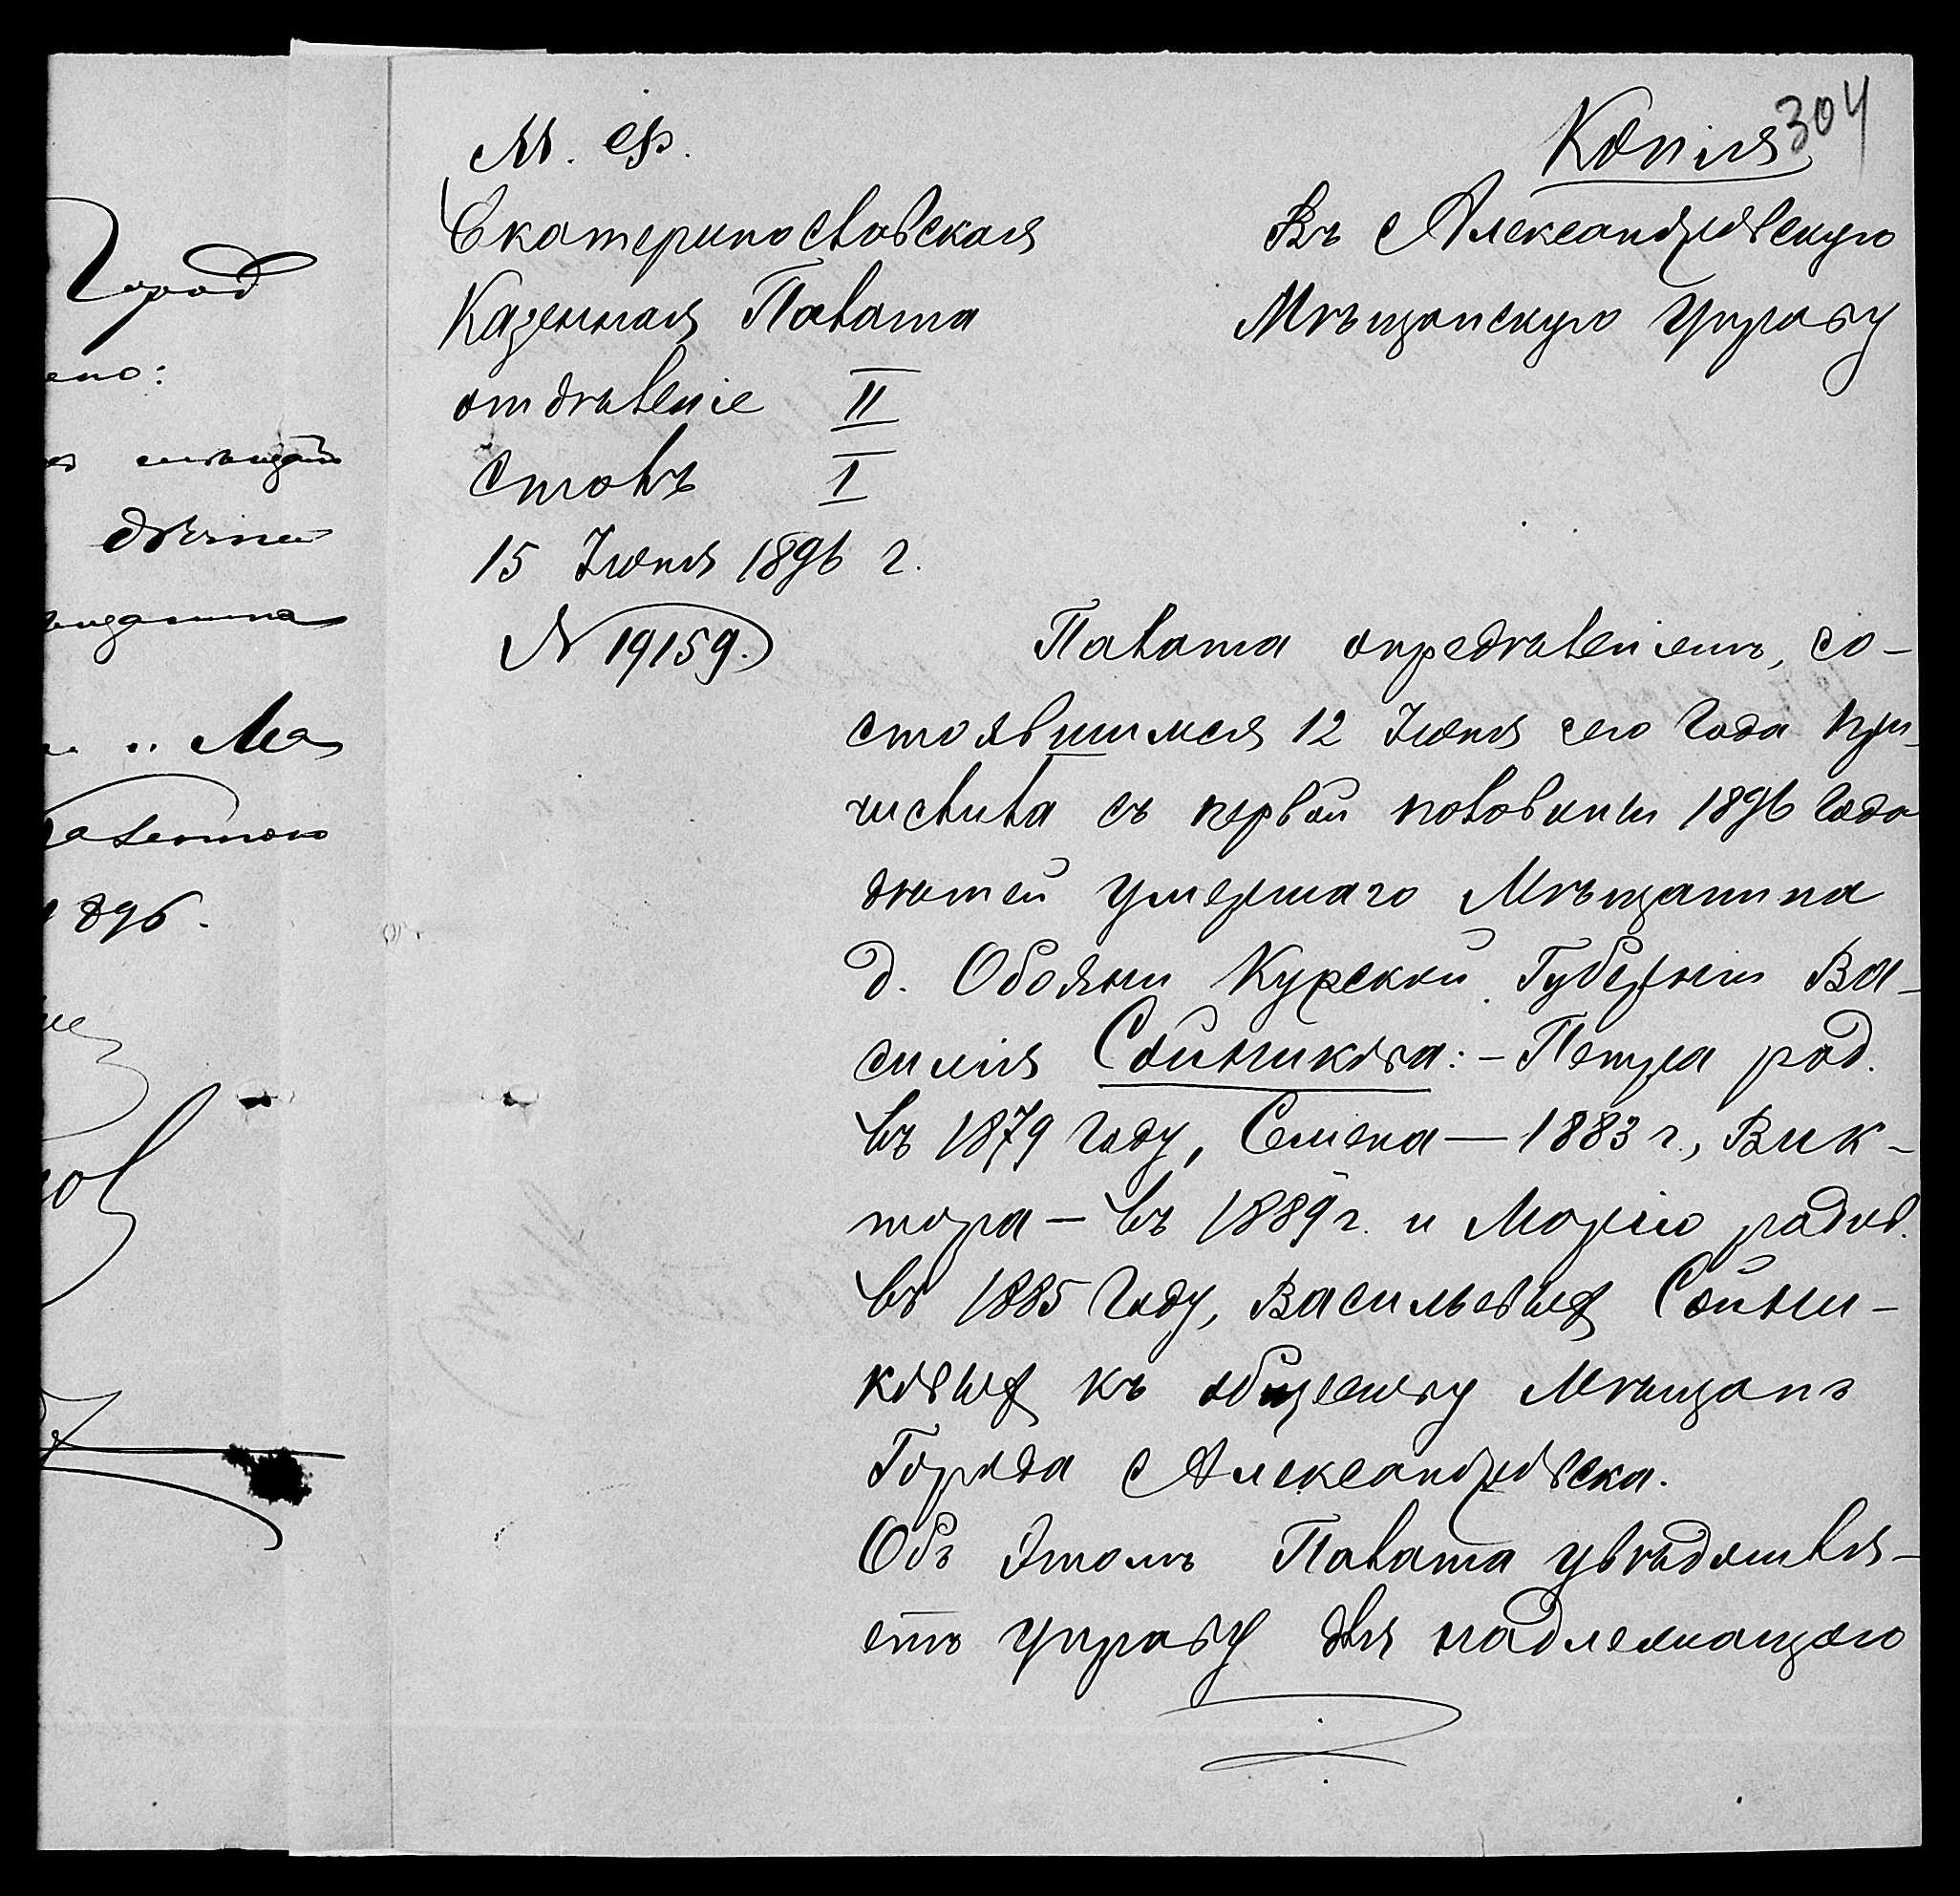 304
Копія
М. Ф.
Екатеринославская
Казенная Палата
отдѣленіе II
столъ I
15 Іюня 1896 г.
№ 19159.
Въ Александровскую
Мѣщанскую Управу
Палата опредѣленіемъ, со-
стоявшимся 12 Іюня сего Года при-
числила съ первой половины 1896 года
дѣтей умершаго Мѣщанина
г. Обояни Курской Губерніи Ва-
силія Сойникова: - Петра род.
въ 1879 Году, Семена — 1883 г., Вик-
тора — въ 1889 г. и Марію родив.
въ 1885 Году, Васильевыхъ Сойни-
ковыхъ къ обществу Мѣщанъ
Города Александровска.
Объ этомъ Палата увѣдомля-
етъ Управу для надлежащаго
Город
ено:
дѣтей
Ма
1896.